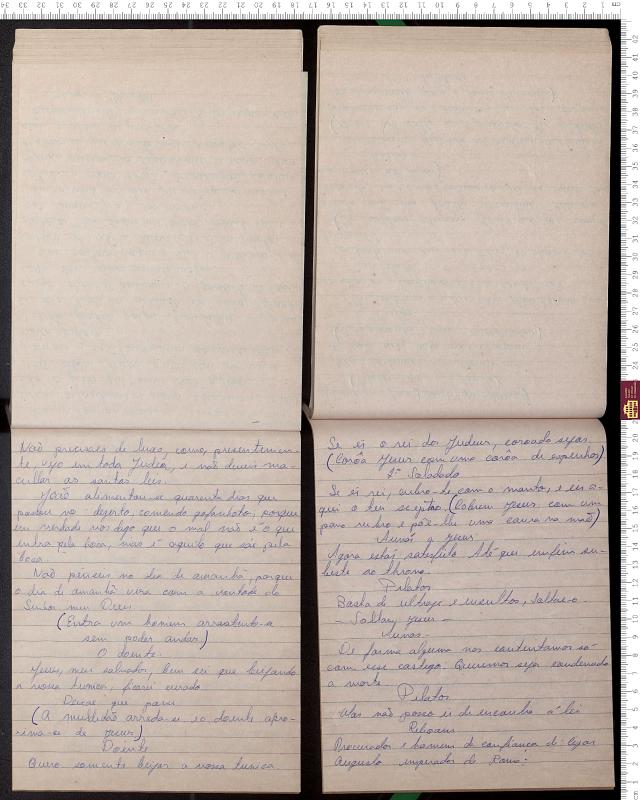 Não preciseis de luxo, como, presentemen-
te vejo em toda Judéa, e não deveis ma-
cular as santas leis.
João alimentou-se quarenta dias que
passou no dezerto, comendo gafanhotos; porque
em verdade vos digo que o mal não é o que
entra pela boca, mas é aquilo que sái pela
boca.
Não penseis no dia de amanhã, porque
o dia de amanhã vira com a vontade do
Senhor meu Deus
(Entra um homem arrastando-se
sem poder andar.)
O doente.
Jesus, meu salvador, bem sei que beijando
a vossa tunica, ficarei curado
Deixae que passe
(A multidão arreda-se e o doente apro-
xima-se de Jesus)
Doente
Quero somente beijar a vossa tunica.
Se és o rei dos Judeus, coroado sejas.
(Corôa Jesus com uma corôa de espinhos)
2º Soldado
Se és rei, cubro-te com o manto, e eis a-
qui o teu scéptro. (Cobrem Jesus com um
pano rubro e põe-lhe uma canna na mão)
Annás a Jesus.
Agora estás satisfeito. Até que enfim su-
biste ao throno.
Pilatos
Basta de ultrages e insultos, Soltae-o
- Soltae Jesus -
Annás.
De forma alguma nos contentamos só
com esse castigo. Queremos seja condenado
a morte.
Pilatos
Mas não posso ir de encontro á lei
Procurador e homem de confiança de Cezar
Augusto imperador de Roma: